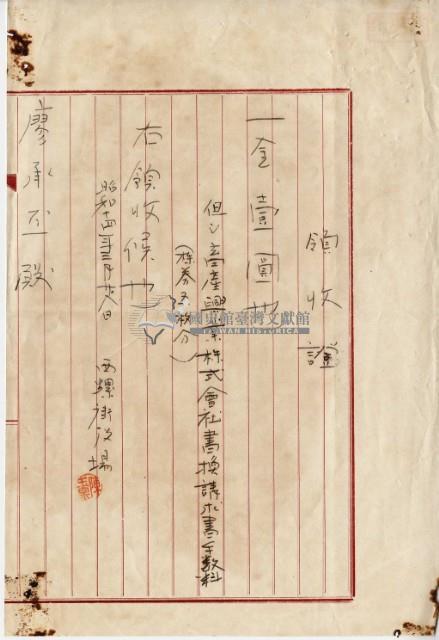 領收證
一金壹圓也
但シ畜產興業株式會社書換請求書手數料
(株券 枚分)
右領收候也
昭和十四年三月 日
西螺街役場
廖承丕殿
國史館臺灣文獻館
TAIWAN HISTORICA